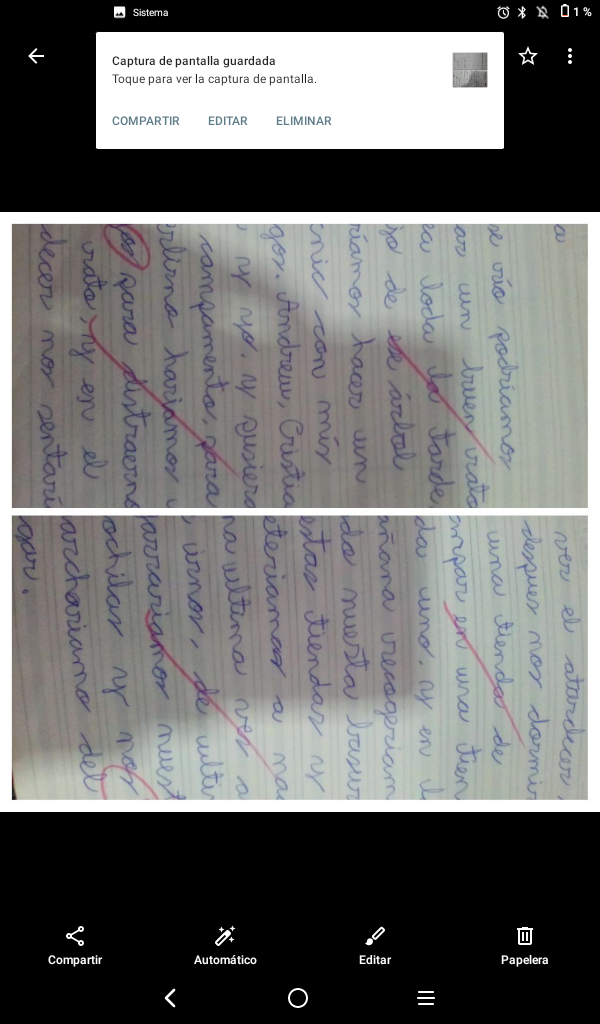 Sistema
1 %
Captura de pantalla guardada
Toque para ver la captura de pantalla.
COMPARTIR EDITAR ELIMINAR
a
podríamos
ar un buen rato
ea toda la tarde,
jo de árbol
ríamos hacer un
nic con mis
gos. Andrew, Cristia
y yo, y quisiera
campamento, para
hariamos
para distraerno
rato, y en el
decer nos sentari
ver el atardecer,
despues nos dormir
una tienda de
ampar en una tien
da uno, y en l
añana recogeriam
do nuesta basur
estas tiendas y
eteriamos a na
na ultima ves a
irnos, de ulti
arrariamos nuest
ochilas y nos
archariamo del
gar.
Compartir Automático Editar Papelera